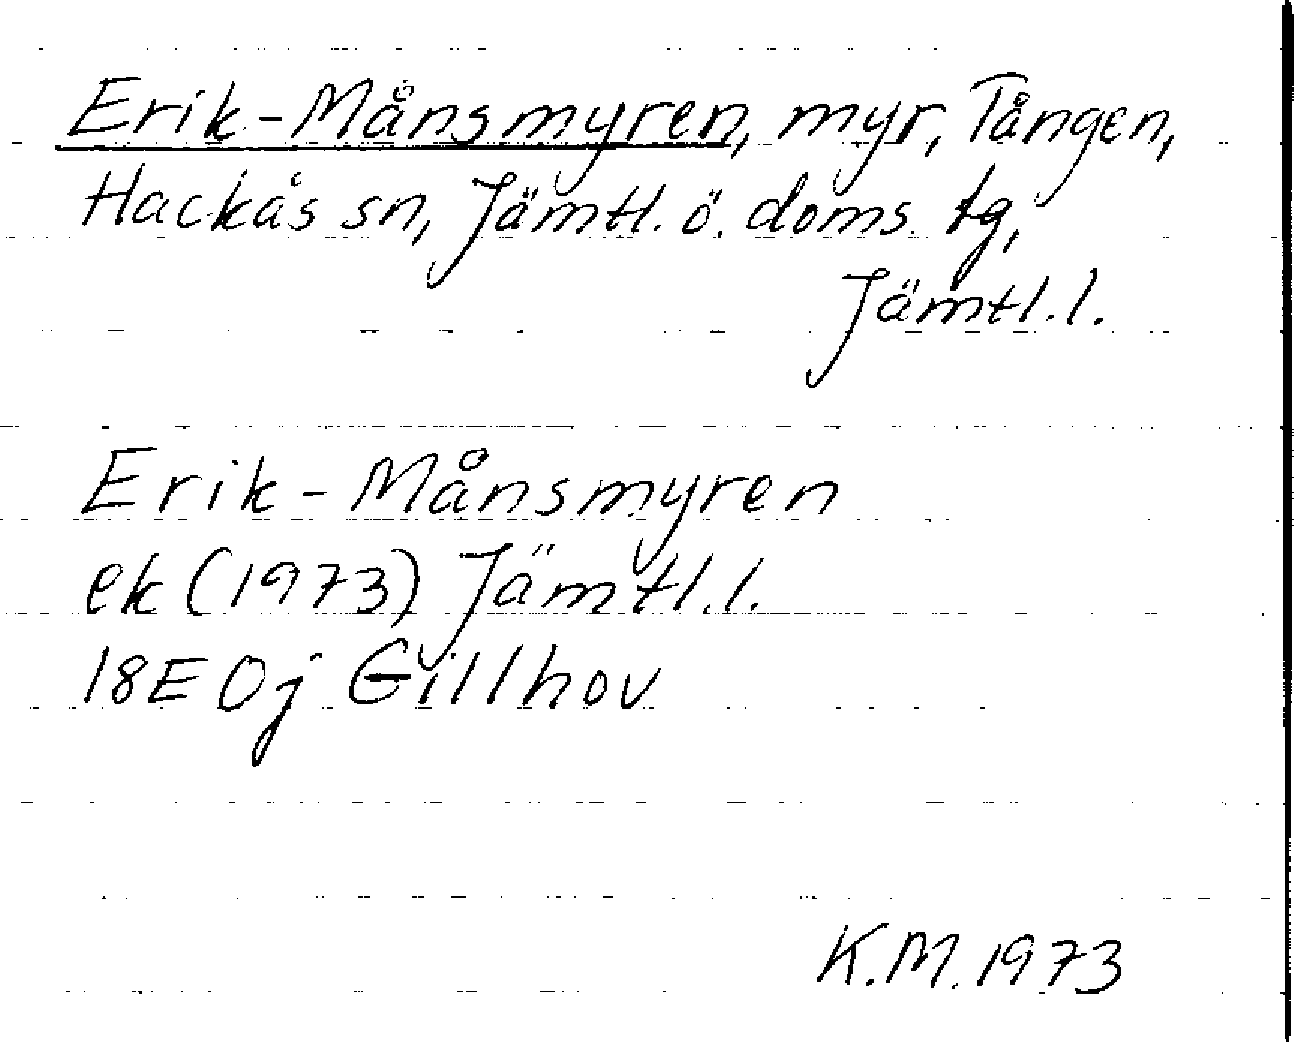 Erik-Månsmyren, myr, Tången,
Hackås sn, Jämtl. ö. doms. tg,
Jämtl. l.
Erik-Månsmyren
ek (1973) Jämtl. l.
18E 0j Gillhov
K.M. 1973